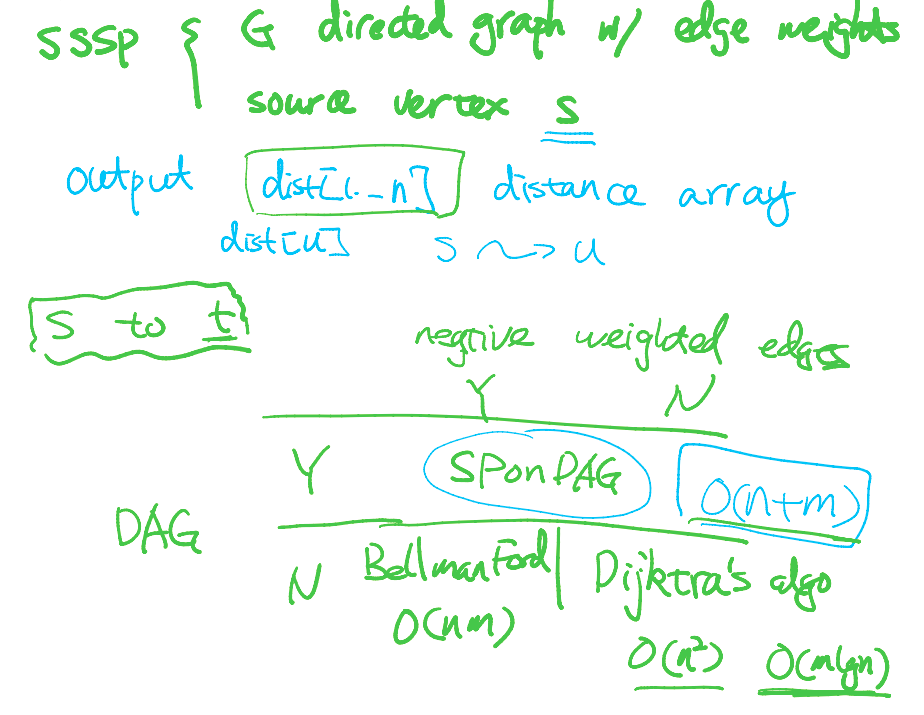 SSSP { G directed graph w/ edge weights
source vertex s
output dist[1..n] distance array
dist[u] s ~> u
S to t
negtive weighted edges
Y N
Y SPonDAG O(n+m)
DAG
N BellmanFord Dijktra's algo
O(nm)
O(n²) O(mlgn)